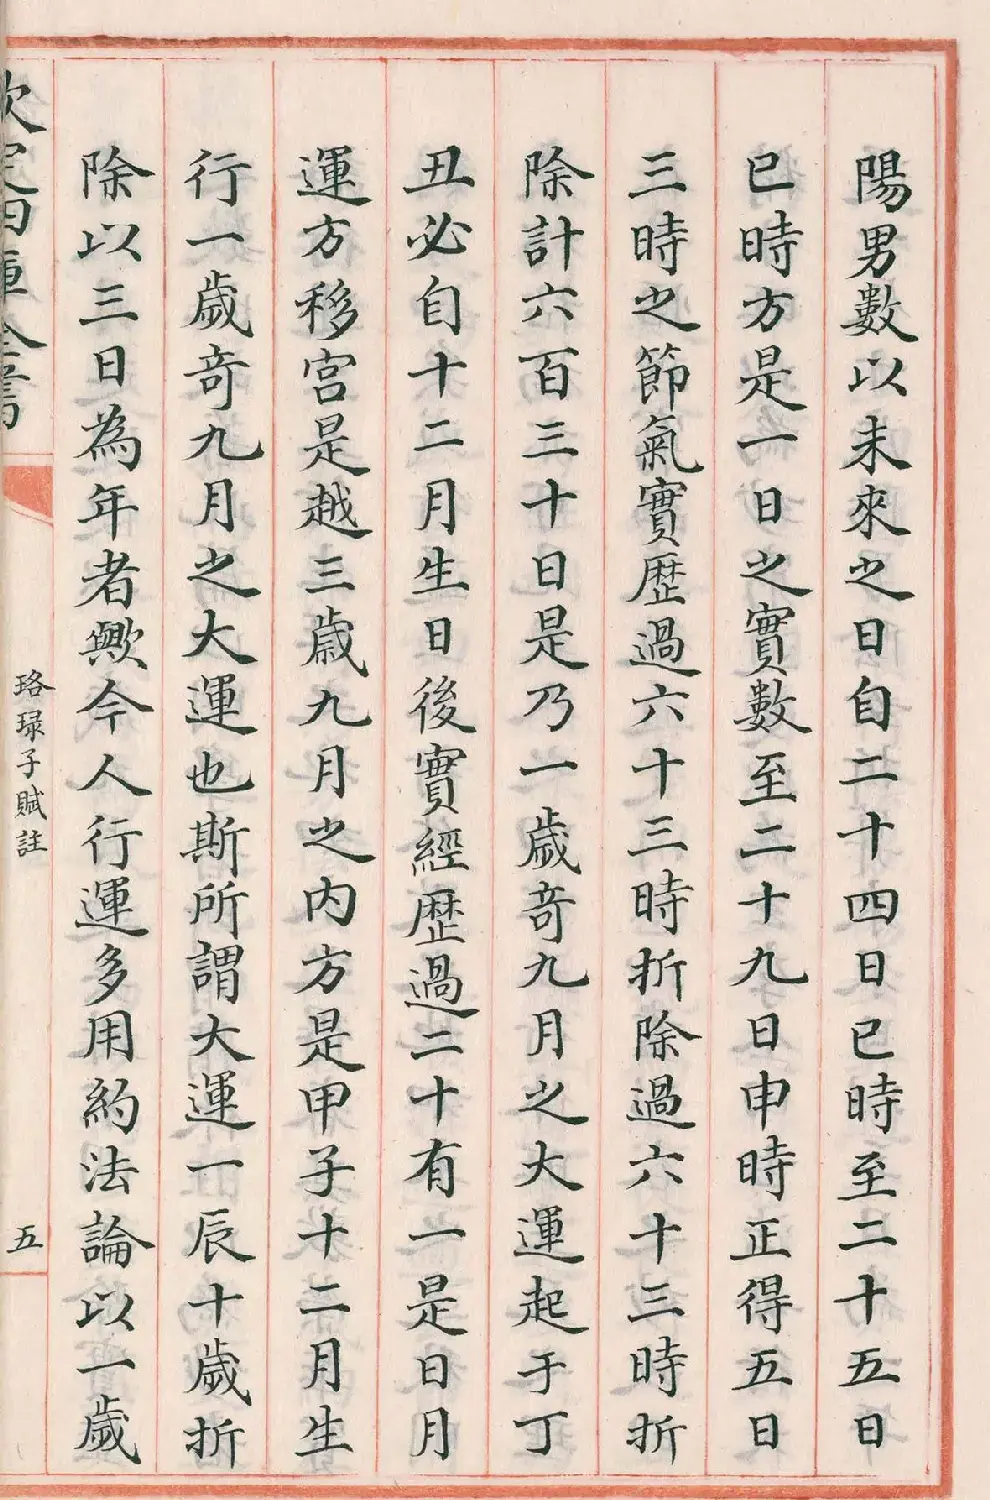 陽男數以未來之日自二十四日巳時至二十五日
巳時方是一日之實數至二十九日申時正得五日
三時之節氣實歷過六十三時折除過六十三時折
除計六百三十日是乃一歲奇九月之大運起于丁
丑必自十二月生日後實經歷過二十有一是日月
運方移宮是越三歲九月之內方是甲子十二月生
行一歲奇九月之大運也斯所謂大運一辰十歲折
除以三日為年者歟今人行運多用約法論以一歲
欽定四庫全書
珞琭子賦註
五